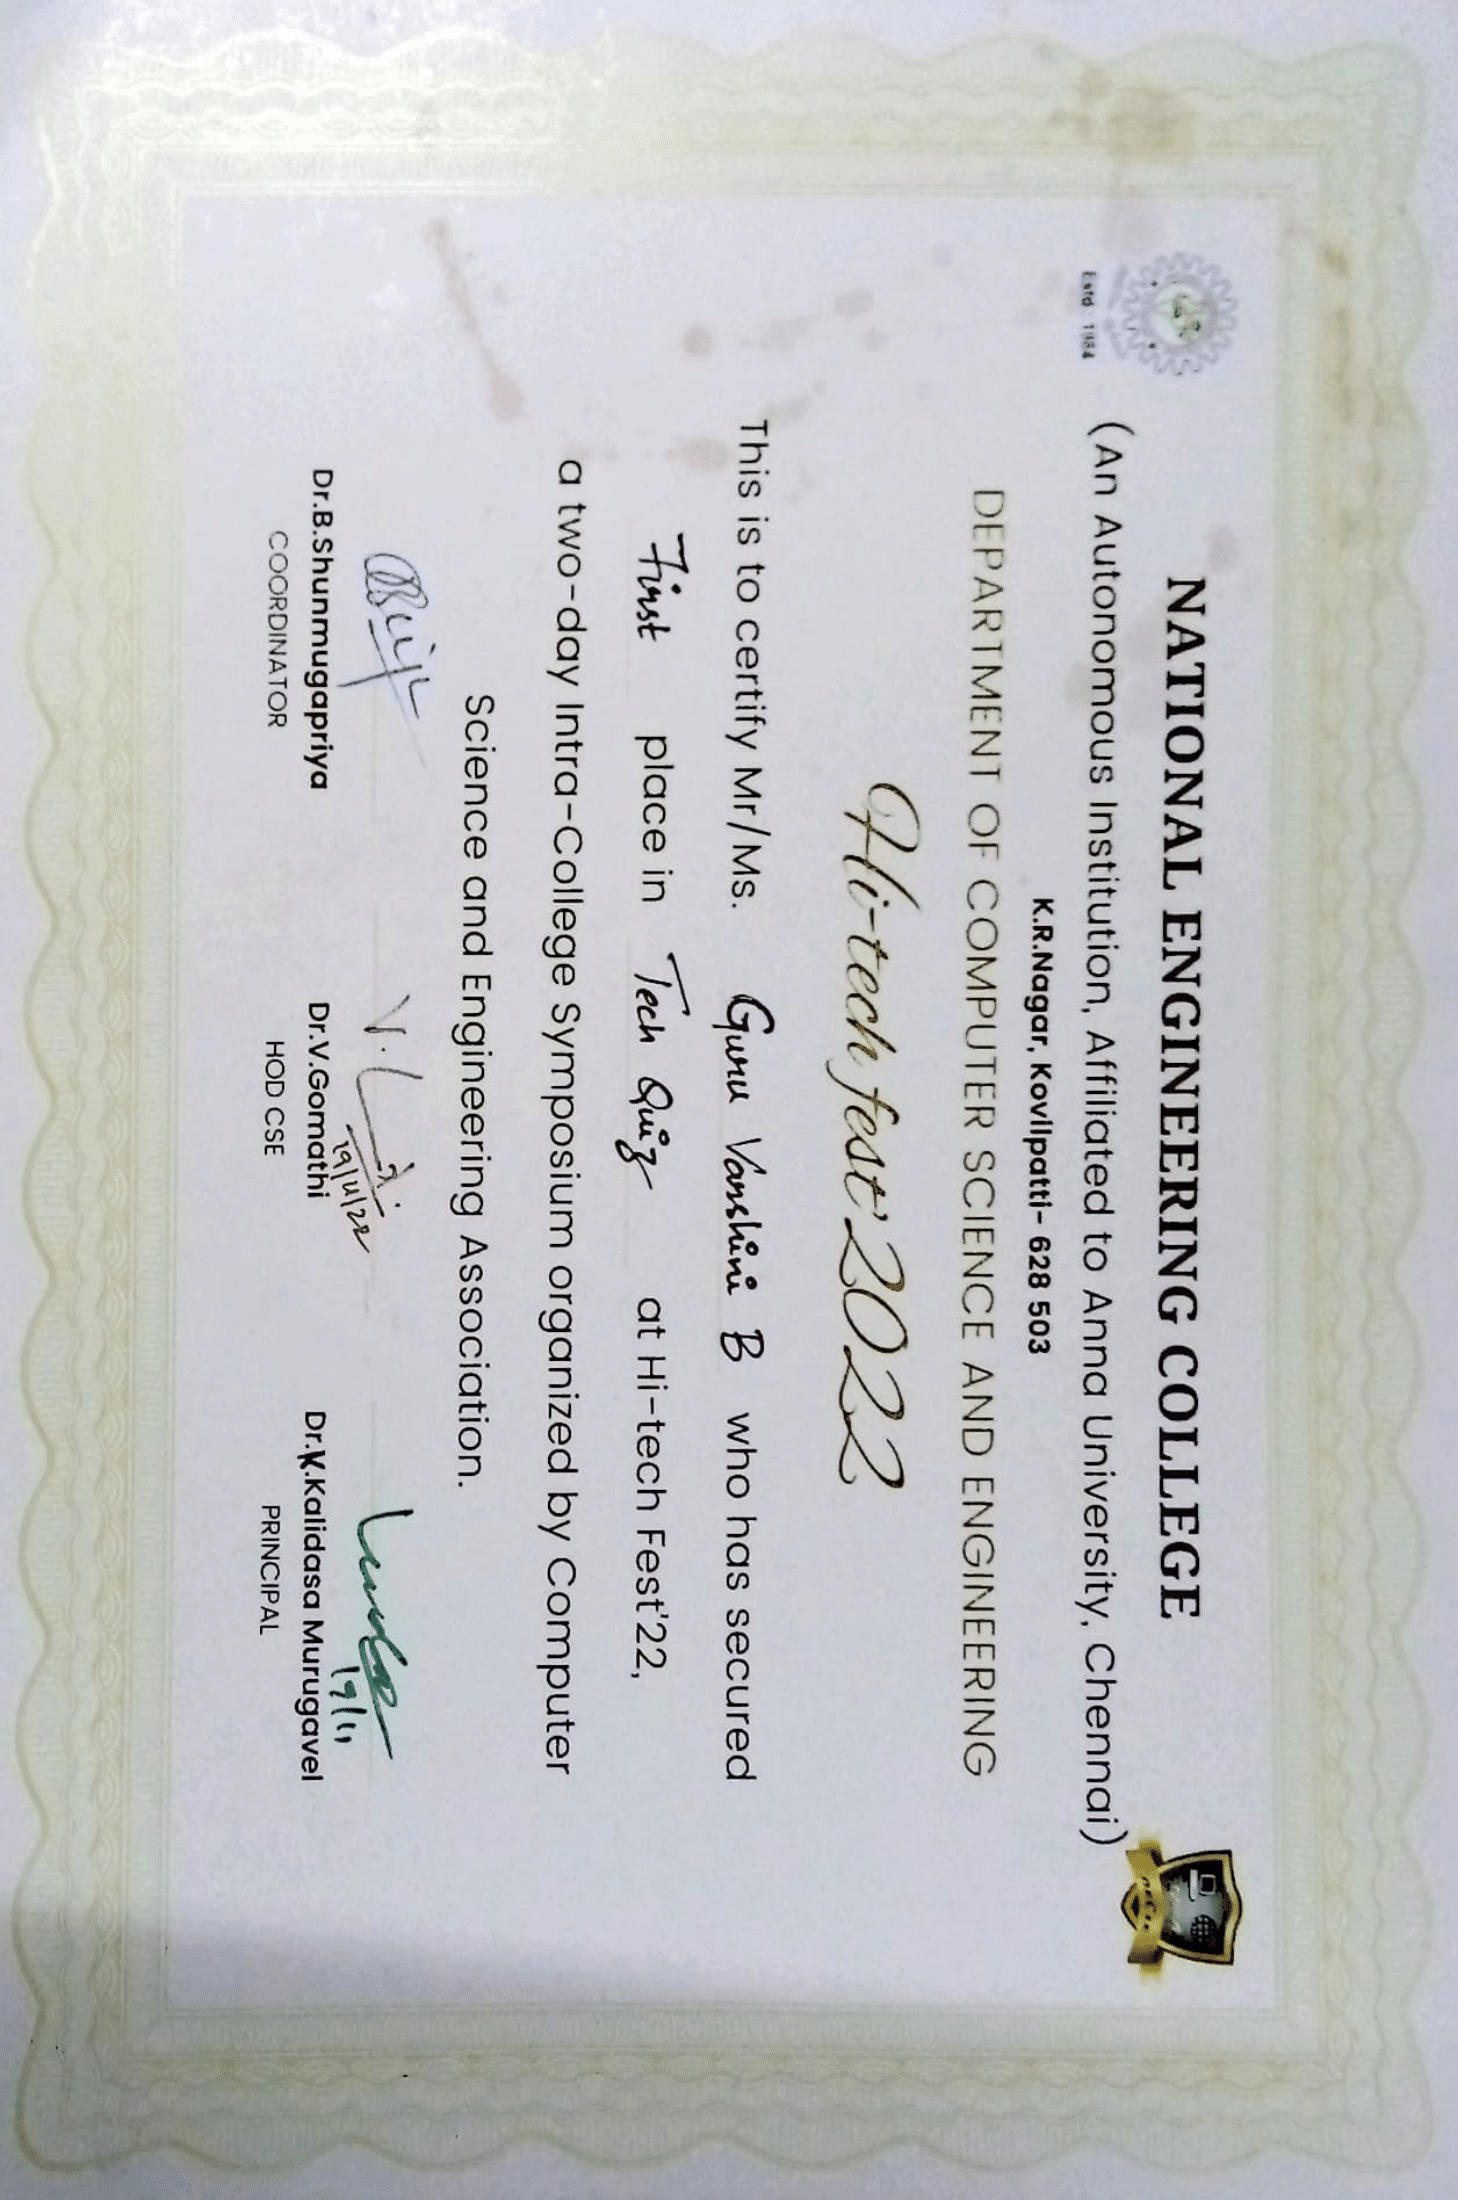 NATIONAL ENGINEERING COLLEGE
(An Autonomous Institution, Affiliated to Anna University, Chennai)
Estd : 1984
K.R.Nagar, Kovilpatti- 628 503
DEPARTMENT OF COMPUTER SCIENCE AND ENGINEERING
Hi-tech fest'2022
This is to certify Mr/Ms. Guru Varshini B who has secured
First place in Tech Quiz at Hi-tech Fest'22,
a two-day Intra-College Symposium organized by Computer
Science and Engineering Association.
19/11/22
19/11
Dr.B.Shunmugapriya Dr.V.Gomathi Dr.K.Kalidasa Murugavel
COORDINATOR HOD CSE PRINCIPAL